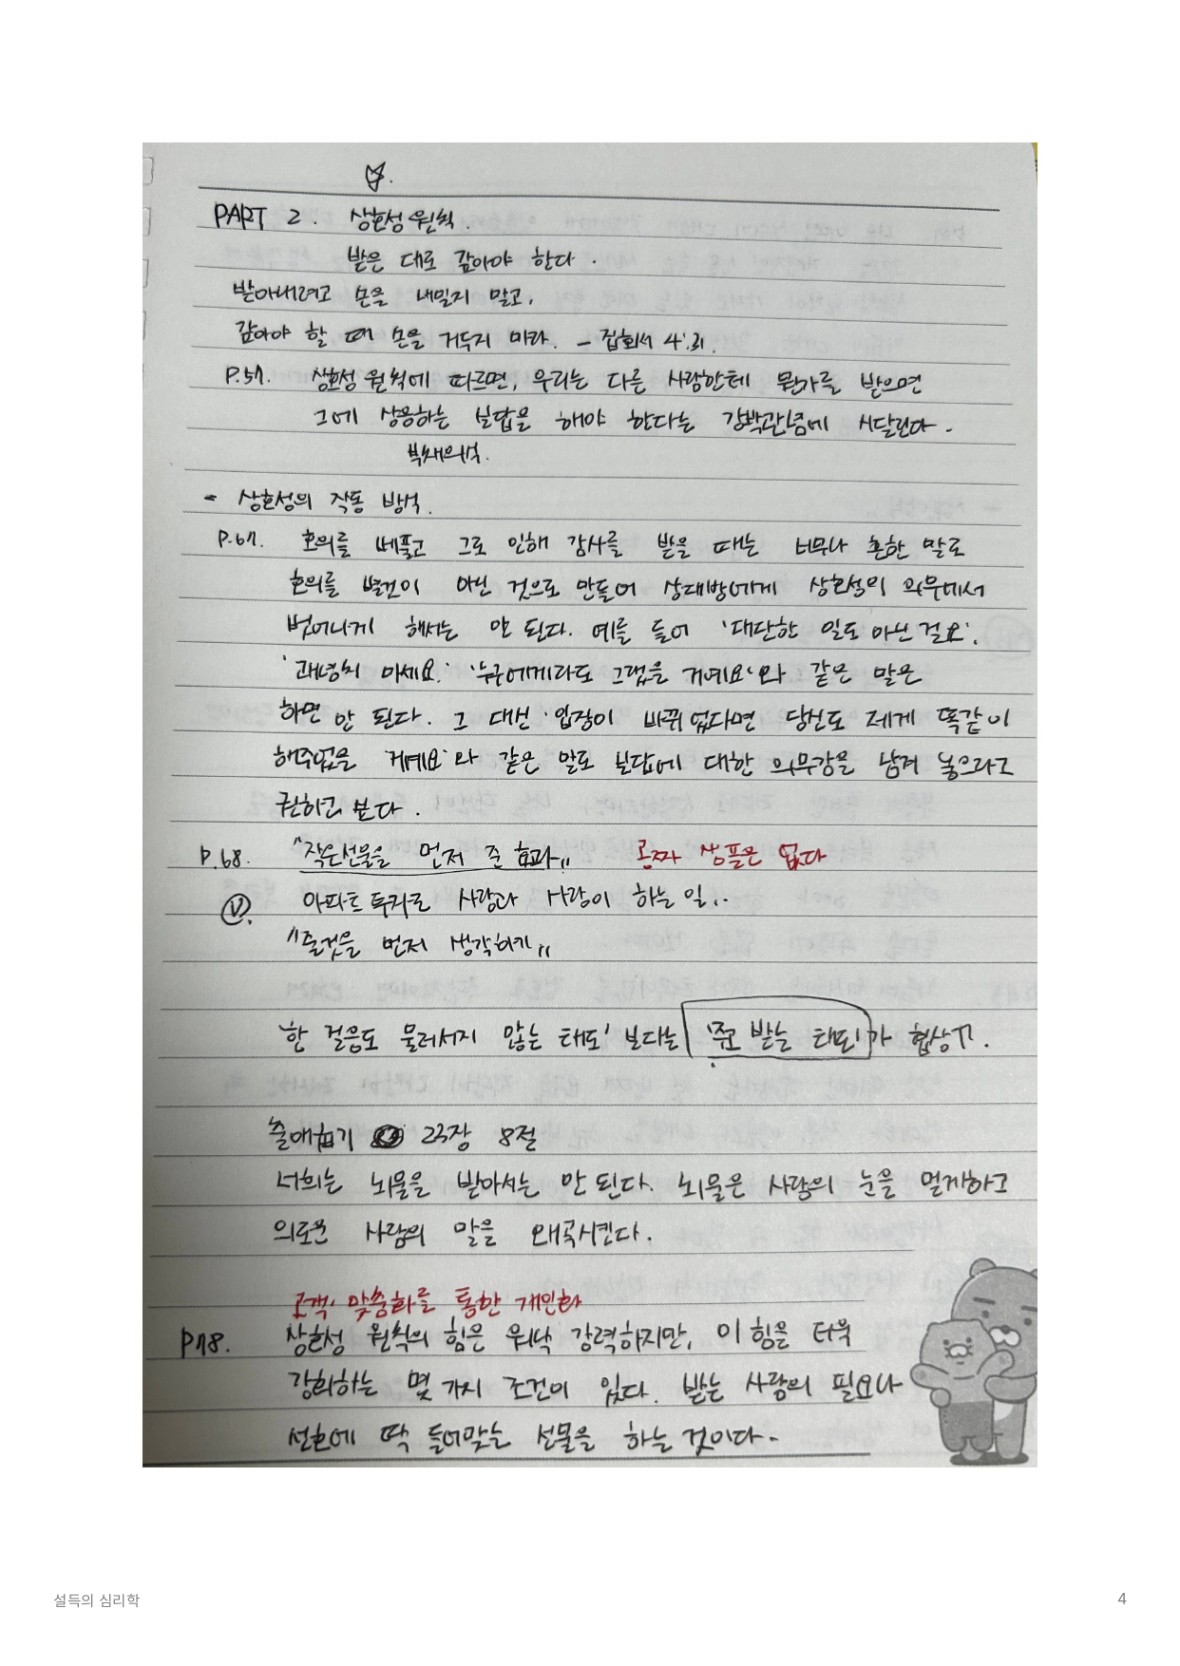 PART 2. 상호성 원칙.
받은 대로 갚아야 한다.
받아내려고 손을 내밀지 말고,
갚아야 할 때 손을 거두지 마라. - 집회서 4:31.
P.57. 상호성 원칙에 따르면, 우리는 다른 사람한테 뭔가를 받으면
그에 상응하는 보답을 해야 한다는 강박관념에 시달린다.
부채의식.
- 상호성의 작동 방식.
P.67. 호의를 베풀고 그로 인해 감사를 받을 때는 너무나 흔한 말로
호의를 별것이 아닌 것으로 만들어 상대방에게 상호성의 의무에서
벗어나게 해서는 안 된다. 예를 들어 '대단한 일도 아닌 걸요'.
'괘념치 마세요.' '누구에게라도 그랬을 거예요'와 같은 말은
하면 안 된다. 그 대신 '입장이 바뀌었다면 당신도 제게 똑같이
해주었을 거예요'와 같은 말로 보답에 대한 의무감을 남겨 놓으라고
권하고 싶다.
P.68. "작은선물을 먼저 준 효과" 공짜 샘플은 없다
아파트 투자로 사람과 사람이 하는 일..
"줄것을 먼저 생각하기"
'한 걸음도 물러서지 않는 태도' 보다는 '주고 받는 태도'가 협상가.
출애굽기 23장 8절
너희는 뇌물을 받아서는 안 된다. 뇌물은 사람의 눈을 멀게하고
의로운 사람의 말을 왜곡시킨다.
고객 맞춤화를 통한 개인화
P78. 상호성 원칙의 힘은 워낙 강력하지만, 이 힘을 더욱
강화하는 몇 가지 조건이 있다. 받는 사람의 필요나
선호에 딱 들어맞는 선물을 하는 것이다.
설득의 심리학
4